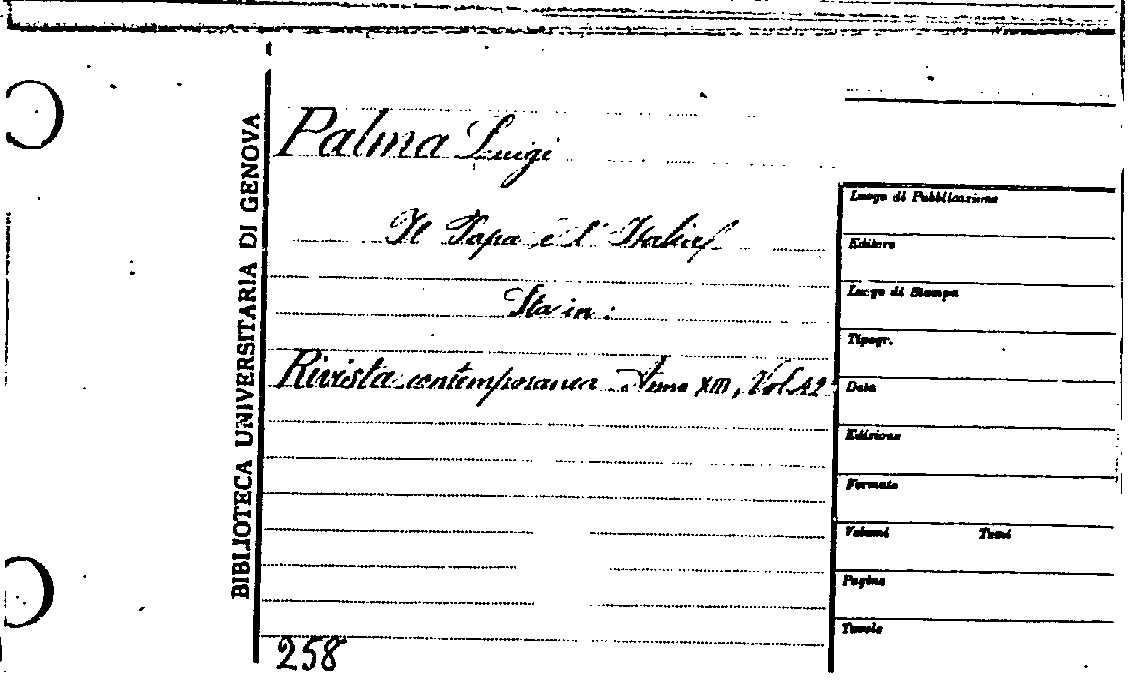 BIBLIOTECA UNIVERSITARIA DI GENOVA
Palma Luigi
Il Papa e l'Italia
Sta in:
Rivista contemporanea Anno XIII, Vol. 42
258
Luogo di Pubblicazione
Editore
Luogo di Stampa
Tipogr.
Data
Edizione
Formato
Volumi Tomi
Pagine
Tavole